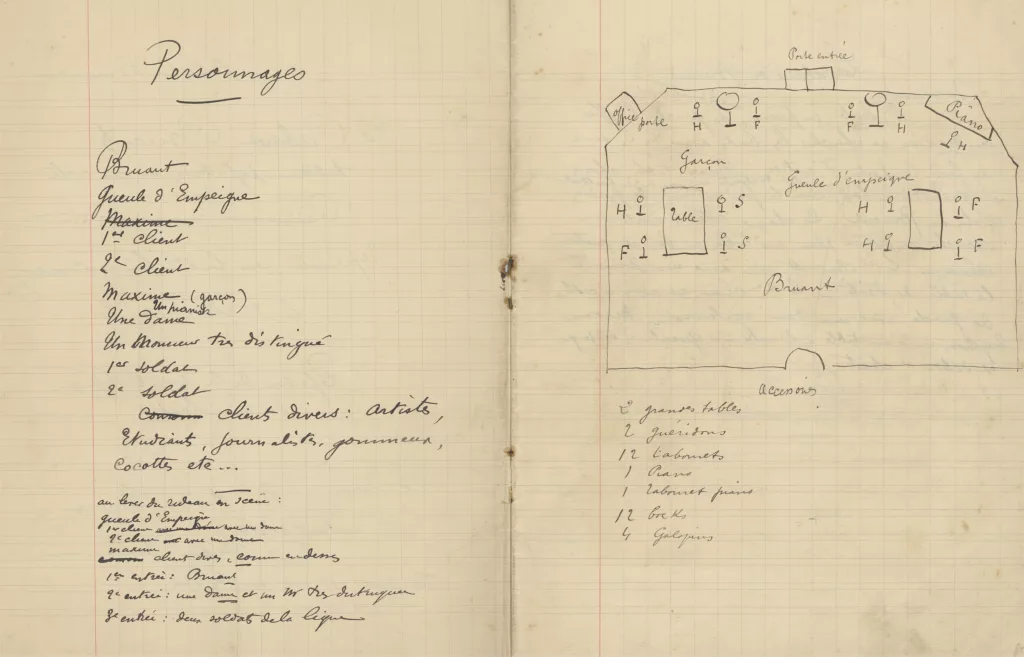 Personnages
Bruant
Gueule d'Empeigne
Maxime
1er client
2e client
Maxime (garçon)
Un pianiste
Une dame
Un Monsieur très distingué
1er soldat
2e soldat
clients divers : artistes,
Etudiants, journalistes, gommeux,
cocottes etc...
au lever du rideau en scène :
gueule d'Empeigne
1er client avec une dame
2e client avec une dame
maxime
client divers, comme en dessus
1re entrée : Bruant
2e entrée : une dame et un Mr très distingué
3e entrée : deux soldats de la ligne
Porte entrée
Office porte
H
F
F
H
Piano
H
Garçon
Gueule d'empeigne
H
Table
S
H
F
F
S
H
F
Bruant
accessoires
2 grandes tables
2 guéridons
12 tabourets
1 Piano
1 tabouret piano
12 bocks
4 Galopins